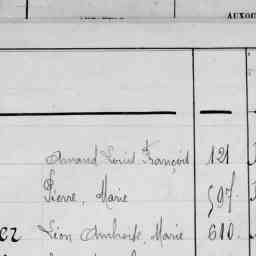 AUXQU
Armand Louis François 121
Pierre, Marie 597.
er Léon Ambroise, Marie 610